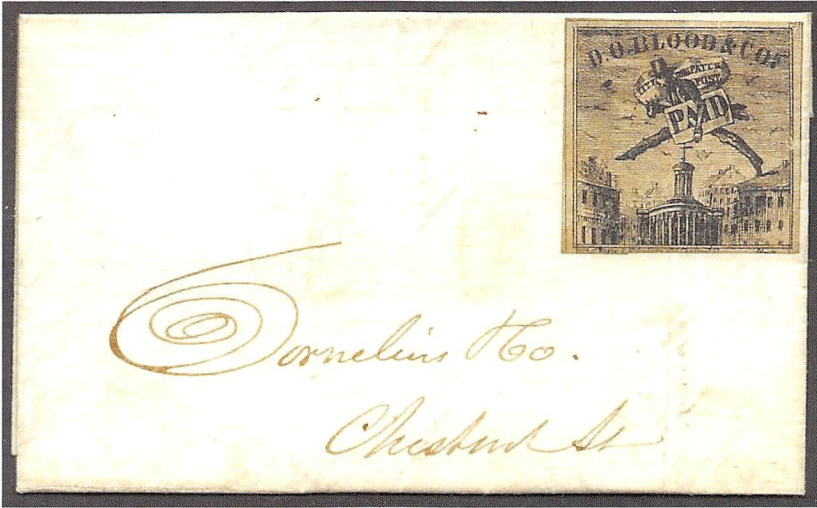 D.O.BLOOD & Co's
CITY DESPATCH
POST
PAID
Cornelius & Co.
Chestnut St